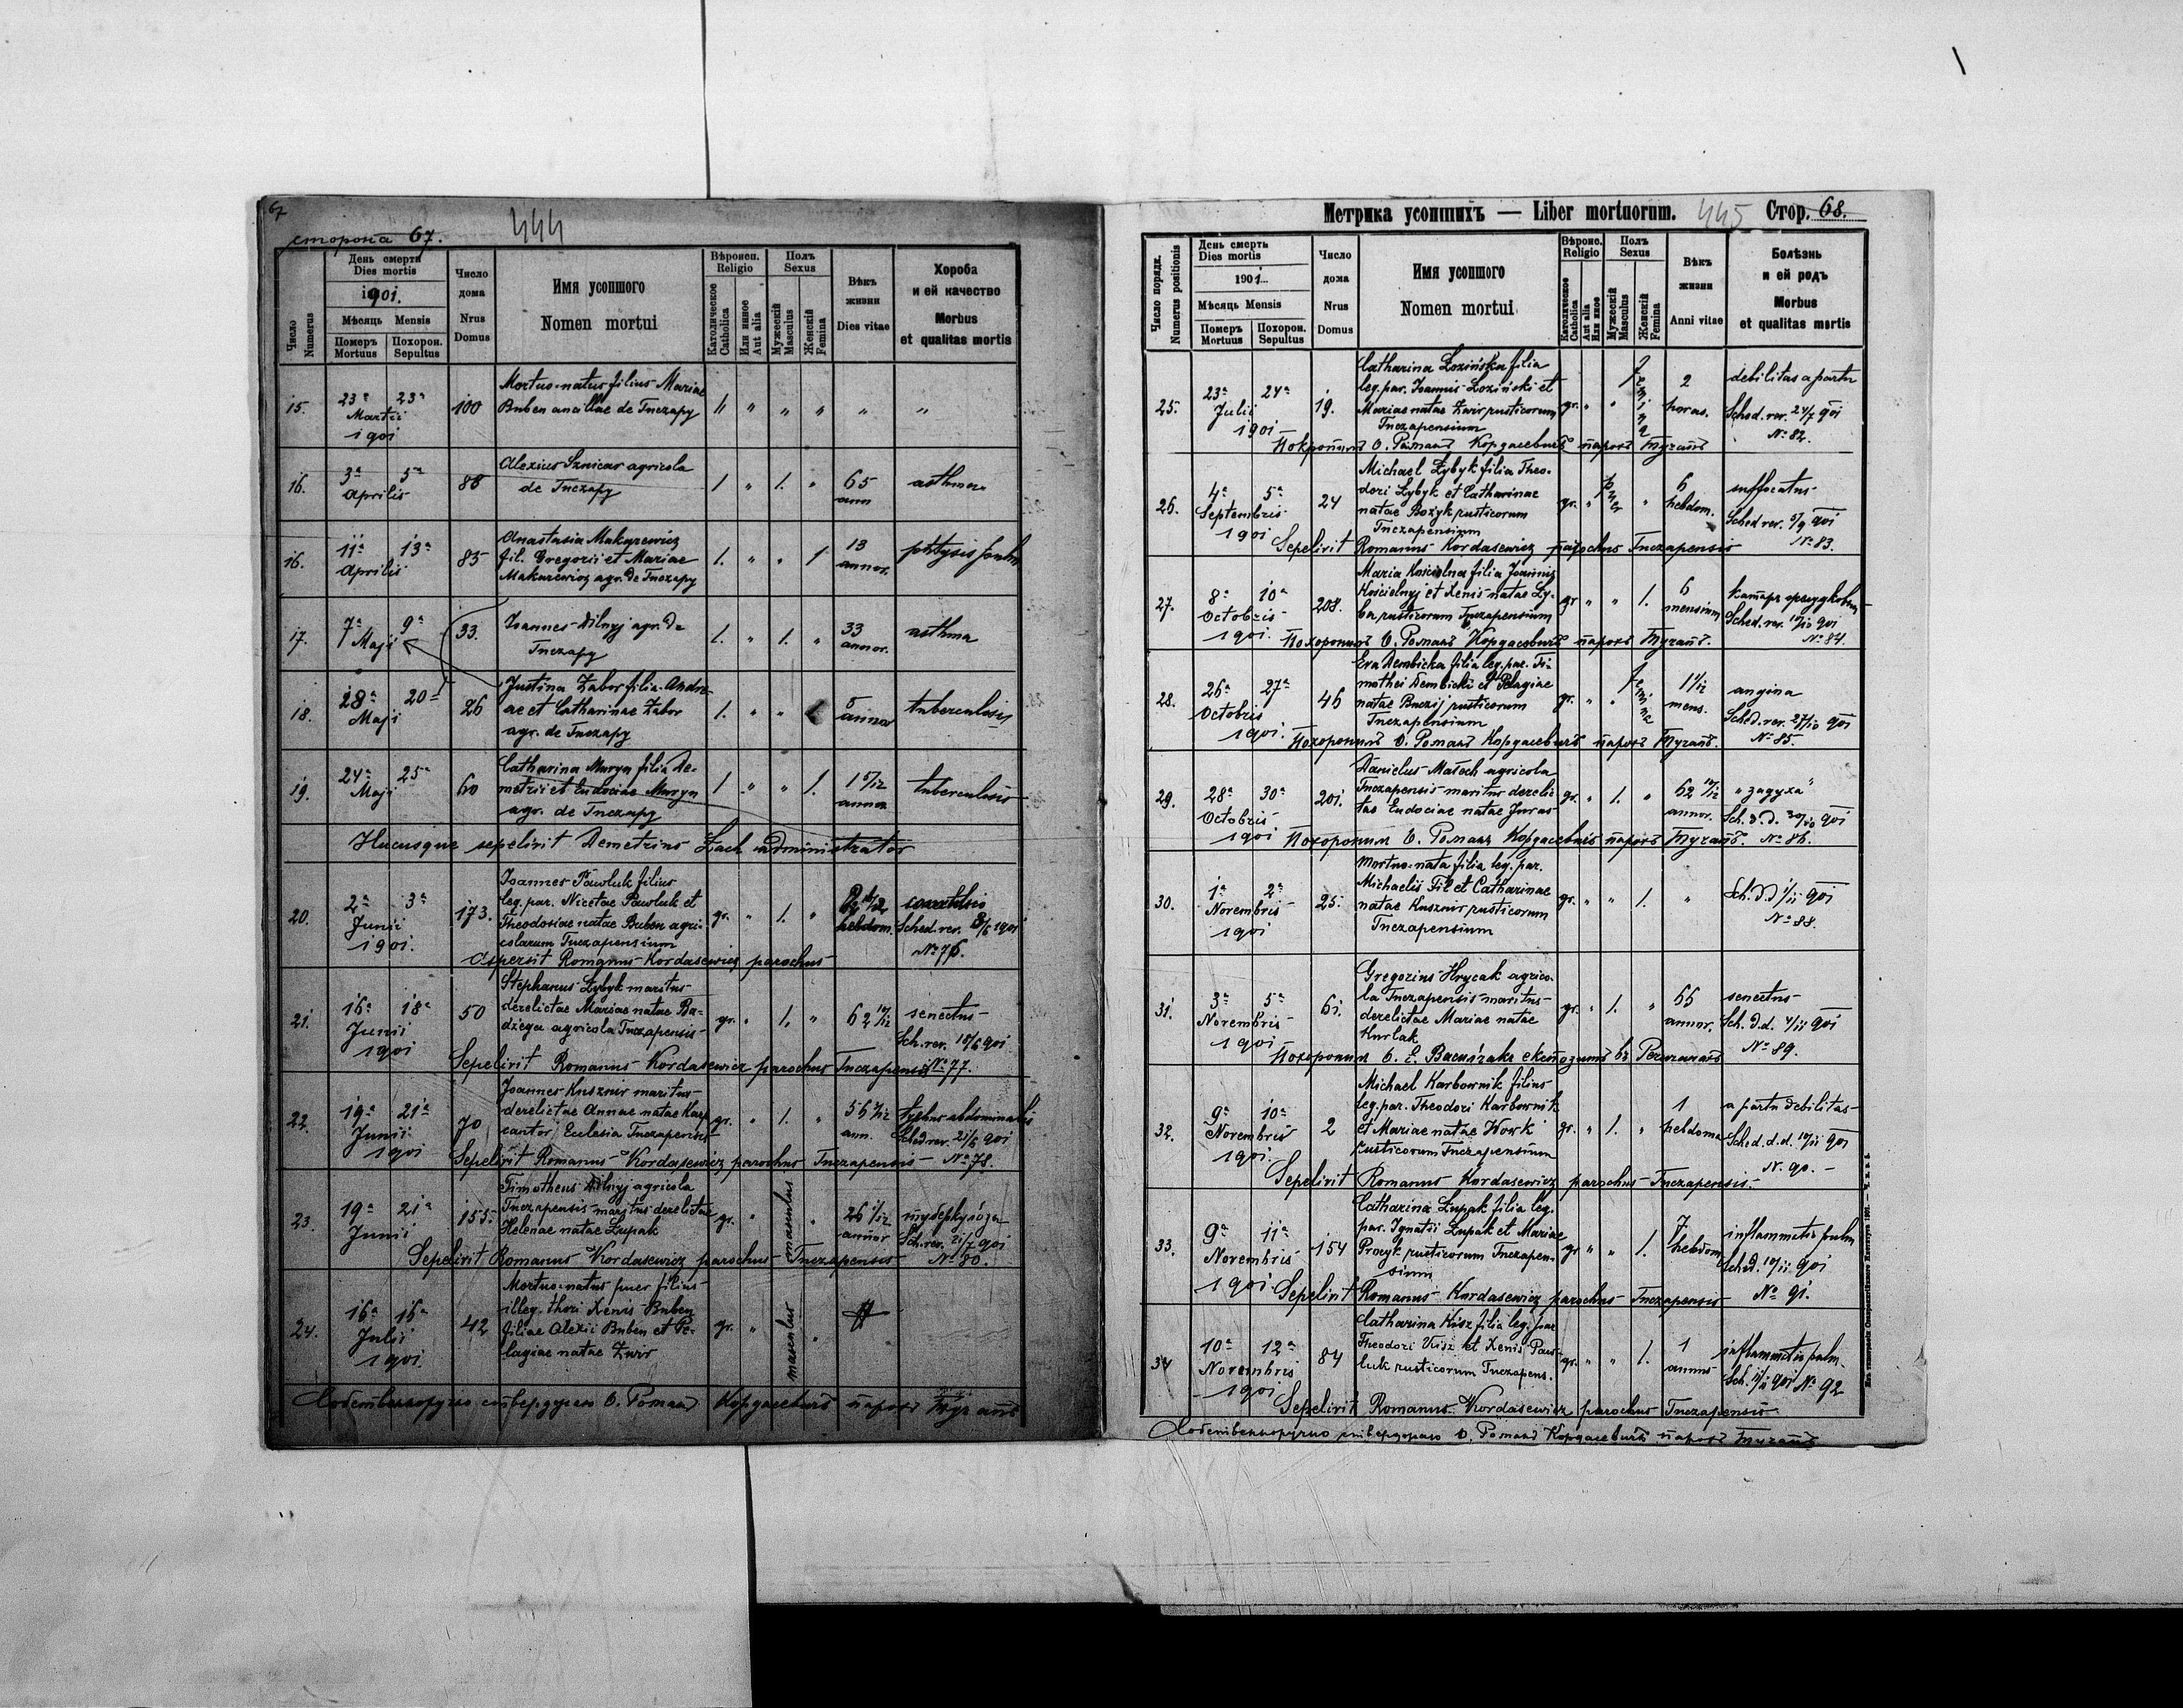 67
444
сторона 67.
Число
Numerus
День смерти
Dies mortis
1901.
Мѣсяць Mensis
Померъ Похорон.
Mortuus Sepultus
Число
дома
Nrus
Domus
Имя усопшого
Nomen mortui
Вѣроисп.
Religio
Католическое
Catholica
Или инное
Aut alia
Полъ
Sexus
Мужескій
Masculus
Женскій
Femina
Вѣкъ
жизни
Dies vitae
Хороба
и ей качество
Morbus
et qualitas mortis
15.
23ª 23ª
Martii
1901
100
Mortuo-natus filius Mariae
Buben ancillae de Tuczapy
16.
3ª 5ª
Aprilis
88
Alexius Sznicar agricola
de Tuczapy
1 " 1. "
65
ann
asthma
16.
11ª 13ª
Aprilis
85
Anastasia Makarewicz
fil. Gregorii et Mariae
Makarewicz agr. de Tuczapy
1. " " 1
13
annor.
phtysis
17.
7ª 9ª
Maji
33.
Joannes Dilnyj agr. de
Tuczapy
1. " 1. "
33
annor.
asthma
18.
28ª 20ª
Maji
26
Justina Zabor filia Andre-
ae et Catharinae Zabor
agr. de Tuczapy
1. " "
5
annor
tuberculosis
19.
24ª 25ª
Maji
60
Catharina Muryn filia De-
metrii et Eudociae Muryn
agr. de Tuczapy
1 " " 1.
1 5/12
annor
tuberculosis
Hucusque sepelivit Demetrius Lach administrator
20.
2ª 3ª
Junii
1901.
173.
Joannes Pawluk filius
leg. par. Nicetae Pawluk et
Theodosiae natae Buben agri-
colarum Tuczapensium
gr. " 1. "
hebdom.
Sched. rev. 3/6 1901
№ 76.
Aspersit Romanus Kordasewicz parochus
21.
16ª 18ª
Junii
1901
50
Stephanus Zybyk maritus
derelictae Mariae natae Ba-
dzega agricola Tuczapensis
gr. " 1. "
62 10/12
senectus
Sch. rev. 18/6 901
№ 77.
Sepelivit Romanus Kordasewicz parochus Tuczapensis
22.
19ª 21ª
Junii
1901
70
Joannes Kusznir maritus
derelictae Annae natae
cantor Ecclesia Tuczapensis
gr. " 1. "
56
ann.
typhus abdominalis
Sched. rev. 21/6 901
Sepelivit Romanus Kordasewicz parochus Tuczapensis № 78.
23.
19ª 21ª
Junii
155.
Timotheus Dilnyj agricola
Tuczapensis maritus derelictae
Helenae natae Zupak
gr. "
masculus
26 1/12
annor
туберкулоза
Sch. rev. 21/7 901
Sepelivit Romanus Kordasewicz parochus Tuczapensis № 80.
24.
16ª 16ª
Julii
1901.
42
Mortuo-natus puer filius
illeg. thori Xenis Buben
filiae Alexii Buben et Pe-
lagiae natae Zwir
gr. "
masculus
Собственноручно стверджаю О. Романъ Кордасевичъ парохъ Тучапъ
Метрика усопшихъ — Liber mortuorum. 445 Стор. 68.
Число порядк.
Numerus positionis
День смерть
Dies mortis
1901...
Мѣсяць Mensis
Померъ Похорон.
Mortuus Sepultus
Число
дома
Nrus
Domus
Имя усопшого
Nomen mortui
Вѣроис.
Religio
Католическое
Catholica
Aut alia
Или иное
Полъ
Sexus
Мужескій
Masculus
Женскій
Femina
Вѣкъ
жизни
Anni vitae
Болѣзнь
и ей родъ
Morbus
et qualitas mortis
25.
23ª 24ª
Julii
1901
19.
Catharina Łozińska filia
leg. par. Joannis Łoziński et
Mariae natae Zwir rusticorum
Tuczapensium
gr. " "
femina
2
horas.
debilitas a partu
Sched. rev. 24/7 901
№ 82.
Покропилъ О. Романъ Кордасевичъ парохъ Тучапъ
26.
4ª 5ª
Septembris
1901
24
Michael Zybyk filia Theo-
dori Zybyk et Catharinae
natae Bozyk rusticorum
Tuczapensium
gr. "
puer
"
6
hebdom.
suffocatus
Sched. rev. 5/9 901
№ 83.
Sepelivit Romanus Kordasewicz parochus Tuczapensis
27.
8ª 10ª
Octobris
1901.
208.
Maria Kościelna filia Joannis
Kościelnyj et Xenis natae Zy-
ba rusticorum Tuczapensium
gr " " 1.
6
mensium
Sched. rev. 10/10 901
№ 84.
Похоронилъ О. Романъ Кордасевичъ парохъ Тучапъ.
28.
26ª 27ª
Octobris
1901.
46
Eva Dembicka filia leg. par. Ti-
mothei Dembicki et Pelagiae
natae Buczij rusticorum
Tuczapensium
gr. " "
femina
1 1/12
mens.
angina
Sched. rev. 27/10 901
№ 85.
Похоронилъ О. Романъ Кордасевичъ парохъ Тучапъ.
29.
28ª 30ª
Octobris
1901
201.
Danielus Małoch agricola
Tuczapensis maritus derelic-
tae Eudociae natae Juras
gr. " 1. "
62 10/12
annor.
"задуха"
Sch. d. d. 30/10 901
№ 86.
Похоронилъ О. Романъ Кордасевичъ парохъ Тучапъ.
30.
1ª 2ª
Novembris
1901
25.
Mortuo-nata filia leg. par.
Michaelis Fil et Catharinae
natae Kusznir rusticorum
Tuczapensium
gr. " " 1.
"
Sch. d. d 1/11 901
№ 88.
31.
3ª 5ª
Novembris
1901
61.
Gregorius Hrycak agrico-
la Tuczapensis maritus
derelictae Mariae natae
Hurlak
gr. " 1. "
66
annor.
senectus
Sch. d. d. 4/11 901
№ 89.
32.
9ª 10ª
Novembris
1901.
2
Michael Karbownik filius
leg. par. Theodori Karbownik
et Mariae natae Wowk
rusticorum Tuczapensium
gr. " 1. "
1
hebdoma
a partu debilitas
Sched. d. d. 10/11 901
№. 90.
Sepelivit Romanus Kordasewicz parochus Tuczapensis.
33.
9ª 11ª
Novembris
1901
154
Catharina Zupak filia leg.
par. Ignatii Zupak et Mariae
Procyk rusticorum Tuczapen-
sium
gr " " 1.
7
hebdom
inflammatio pulm
Sched. 10/11 901
№ 91.
Sepelivit Romanus Kordasewicz parochus Tuczapensis
34
10ª 12ª
Novembris
1901
84
Catharina Kisz filia leg. par
Theodori Kisz et Xenis Paw-
luk rusticorum Tuczapens.
gr. " " 1.
1
annus
inflammatio pulm.
Sch. 11/11 901 № 92
Sepelivit Romanus Kordasewicz parochus Tuczapensis
Собственноручно стверджаю О. Романъ Кордасевичъ парохъ Тучапъ